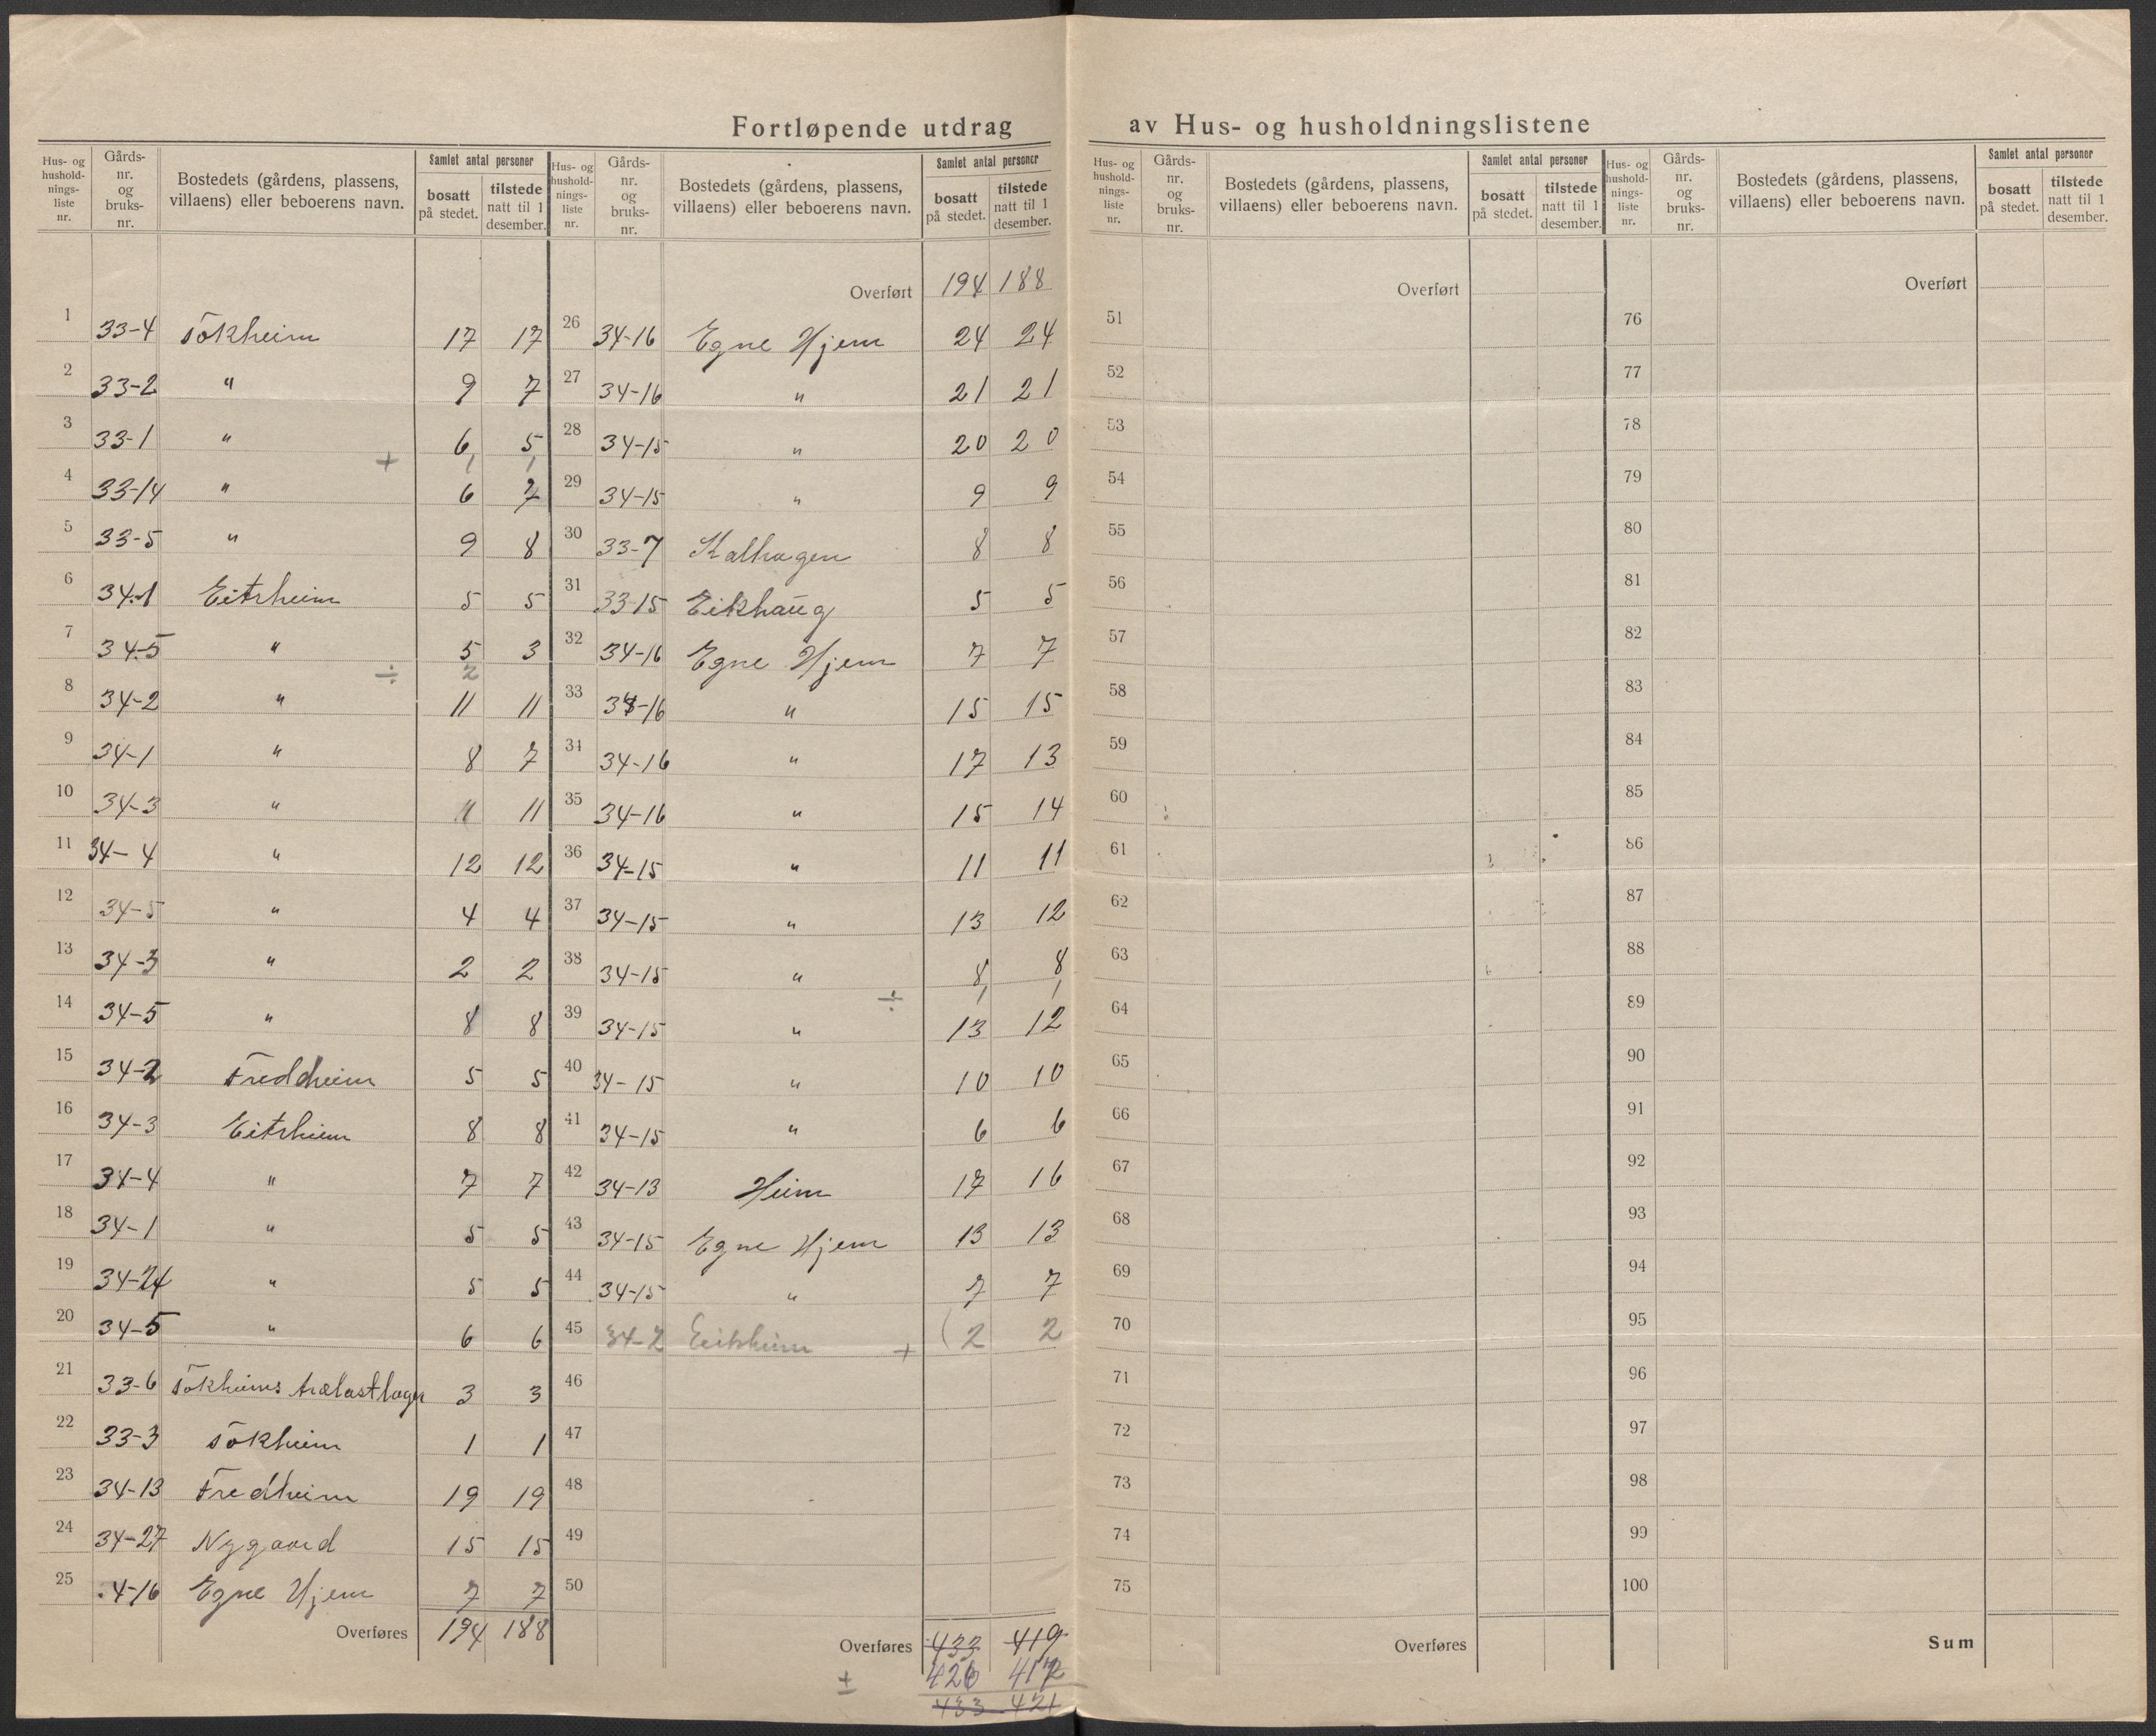 Fortløpende utdrag av Hus- og husholdningslistene
Hus- og hushold- nings- liste nr. | Gårds- nr. og bruks- nr. | Bostedets (gårdens, plassens, villaens) eller beboerens navn. | Samlet antal personer | bosatt på stedet. | tilstede natt til 1 desember.
1 33-4 Tokheim 17 17
2 33-2 " 9 7
3 33-1 " 6 5
+ 1 1
4 33-14 " 6 7
5 33-5 " 9 8
6 34-1 Eitrheim 5 5
7 34-5 " 5 3
÷ 2
8 34-2 " 11 11
9 34-1 " 8 7
10 34-3 " 11 11
11 34-4 " 12 12
12 34-5 " 4 4
13 34-3 " 2 2
14 34-5 " 8 8
15 34-2 Fredheim 5 5
16 34-3 Eitrheim 8 8
17 34-4 " 7 7
18 34-1 " 5 5
19 34-24 " 5 5
20 34-5 " 6 6
21 33-6 Tokheims trælastlager 3 3
22 33-3 Tokheim 1 1
23 34-13 Fredheim 19 19
24 34-27 Nygaard 15 15
25 4-16 Egne Hjem 7 7
Overføres 194 188
Hus- og hushold- nings- liste nr. | Gårds- nr. og bruks- nr. | Bostedets (gårdens, plassens, villaens) eller beboerens navn. | Samlet antal personer | bosatt på stedet. | tilstede natt til 1 desember.
Overført 194 188
26 34-16 Egne Hjem 24 24
27 34-16 " 21 21
28 34-15 " 20 20
29 34-15 " 9 9
30 33-7 Kalhagen 8 8
31 33-15 Eikhaug 5 5
32 34-16 Egne Hjem 7 7
33 34-16 " 15 15
34 34-16 " 17 13
35 34-16 " 15 14
36 34-15 " 11 11
37 34-15 " 13 12
38 34-15 " 8 8
÷ 1 1
39 34-15 " 13 12
40 34-15 " 10 10
41 34-15 " 6 6
42 34-13 Heim 17 16
43 34-15 Egne Hjem 13 13
44 34-15 " 7 7
45 34-2 Eitrheim + (2 2
46
47
48
49
50
Overføres 433 419
± 426 417
433 421
Hus- og hushold- nings- liste nr. | Gårds- nr. og bruks- nr. | Bostedets (gårdens, plassens, villaens) eller beboerens navn. | Samlet antal personer | bosatt på stedet. | tilstede natt til 1 desember.
Overført
51
52
53
54
55
56
57
58
59
60
61
62
63
64
65
66
67
68
69
70
71
72
73
74
75
Overføres
Hus- og hushold- nings- liste nr. | Gårds- nr. og bruks- nr. | Bostedets (gårdens, plassens, villaens) eller beboerens navn. | Samlet antal personer | bosatt på stedet. | tilstede natt til 1 desember.
Overført
76
77
78
79
80
81
82
83
84
85
86
87
88
89
90
91
92
93
94
95
96
97
98
99
100
Sum